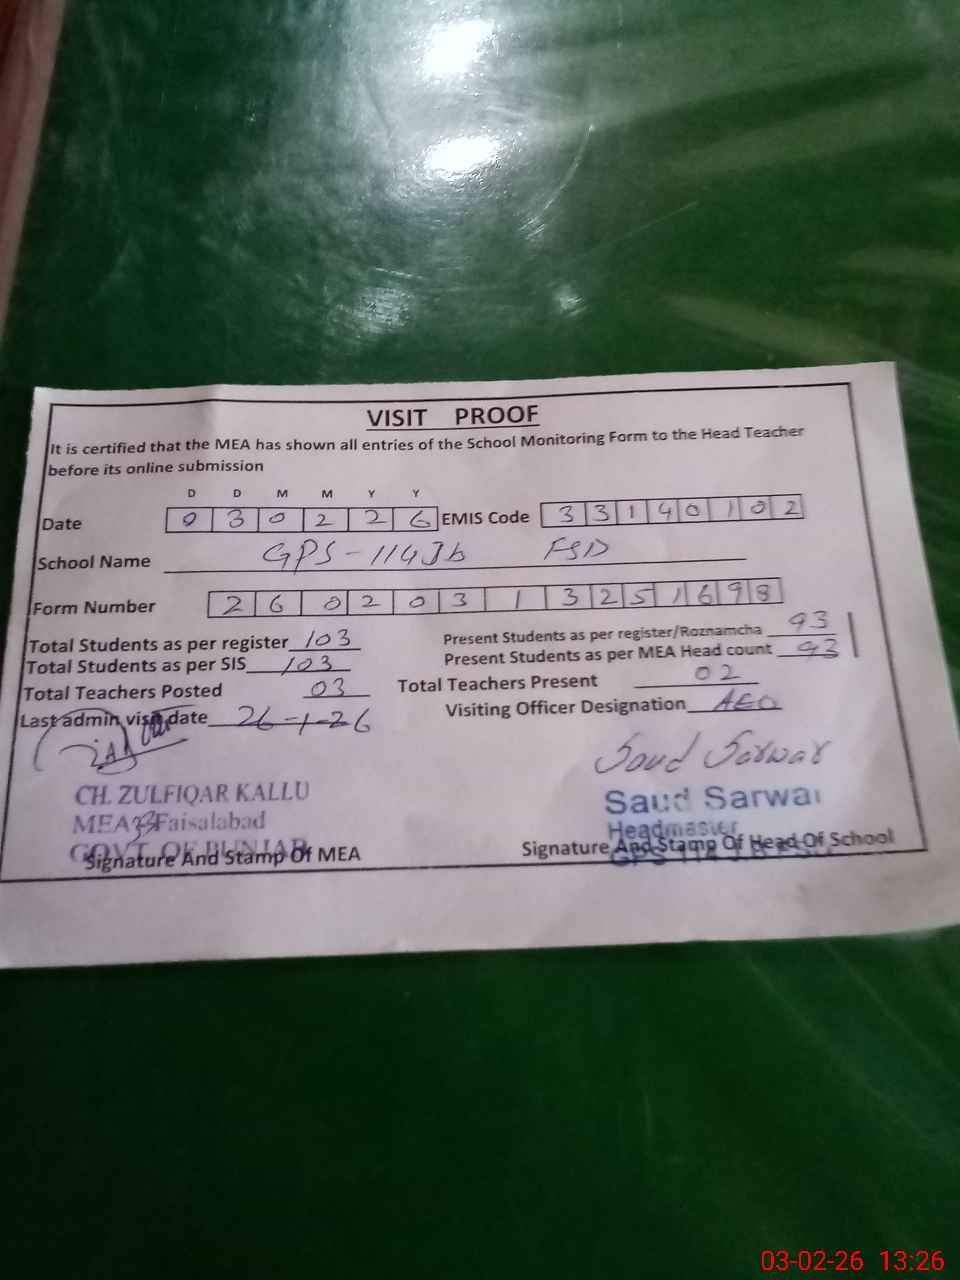 VISIT PROOF
It is certified that the MEA has shown all entries of the School Monitoring Form to the Head Teacher
before its online submission
D D M M Y Y
Date 0 3 0 2 2 6 EMIS Code 3 3 1 4 0 1 0 2
School Name GPS-114Jb FSD
Form Number 2 6 0 2 0 3 1 3 2 5 1 6 9 8
Total Students as per register 103 Present Students as per register/Roznamcha 93
Total Students as per SIS 103 Present Students as per MEA Head count 93
Total Teachers Posted 03 Total Teachers Present 02
Last admin visit date 26-1-26 Visiting Officer Designation AEO
Saud Sarwar
CH. ZULFIQAR KALLU Saud Sarwar
MEA 33 Faisalabad Headmaster
GOVT. OF PUNJAB
Signature And Stamp Of MEA Signature And Stamp Of Head Of School
03-02-26 13:26